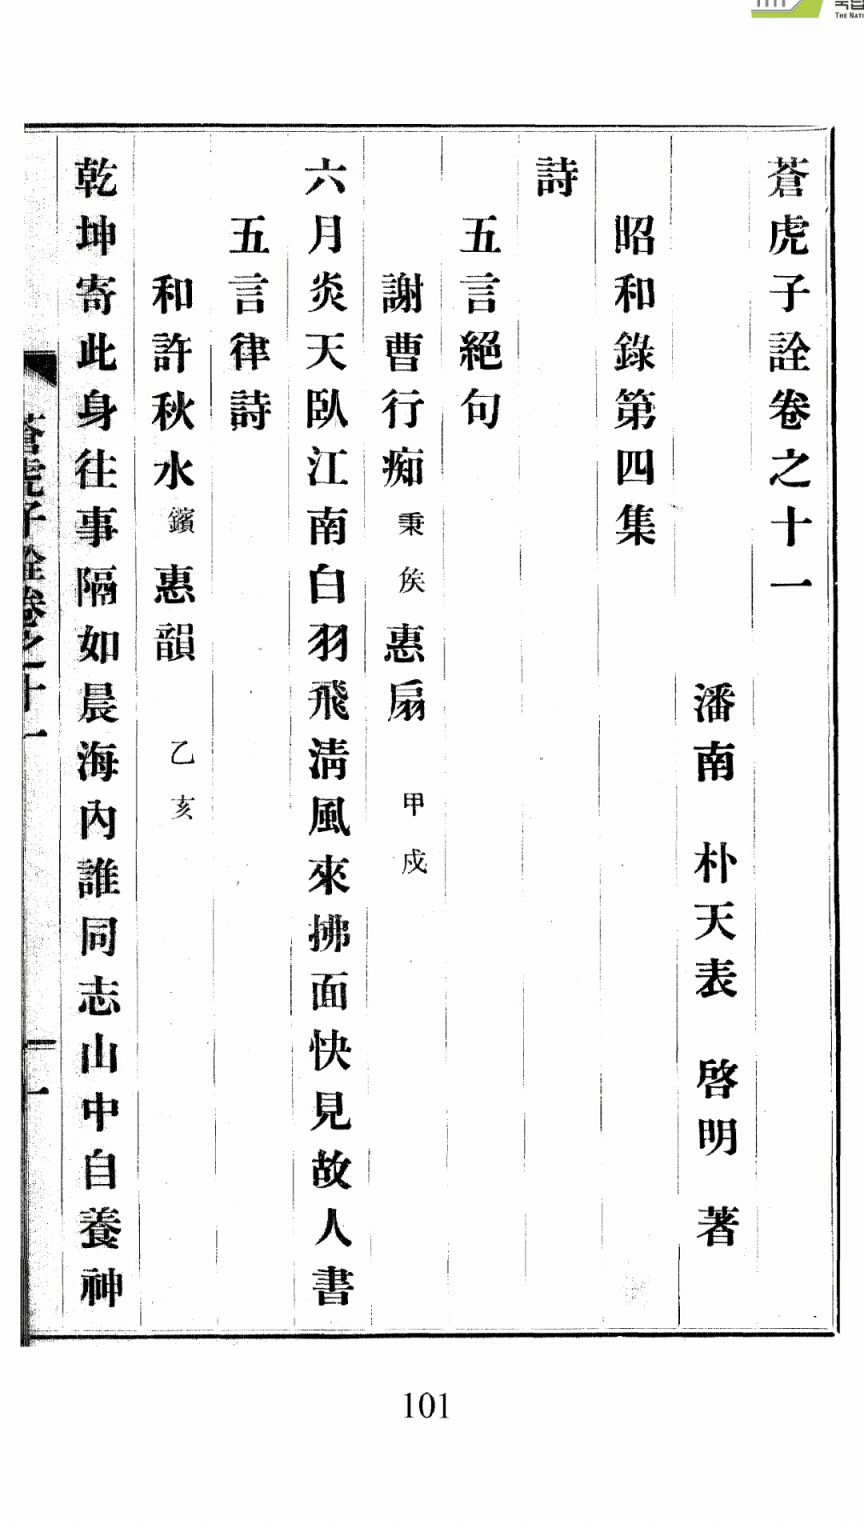 蒼虎子詮卷之十一
潘南 朴天表 啓明 著
昭和錄第四集
詩
五言絕句
謝曹行痴秉矦惠扇 甲戍
六月炎天臥江南白羽飛淸風來拂面快見故人書
五言律詩
和許秋水鑌惠韻 乙亥
乾坤寄此身往事隔如晨海內誰同志山中自養神
蒼虎子詮卷之十一
一
101